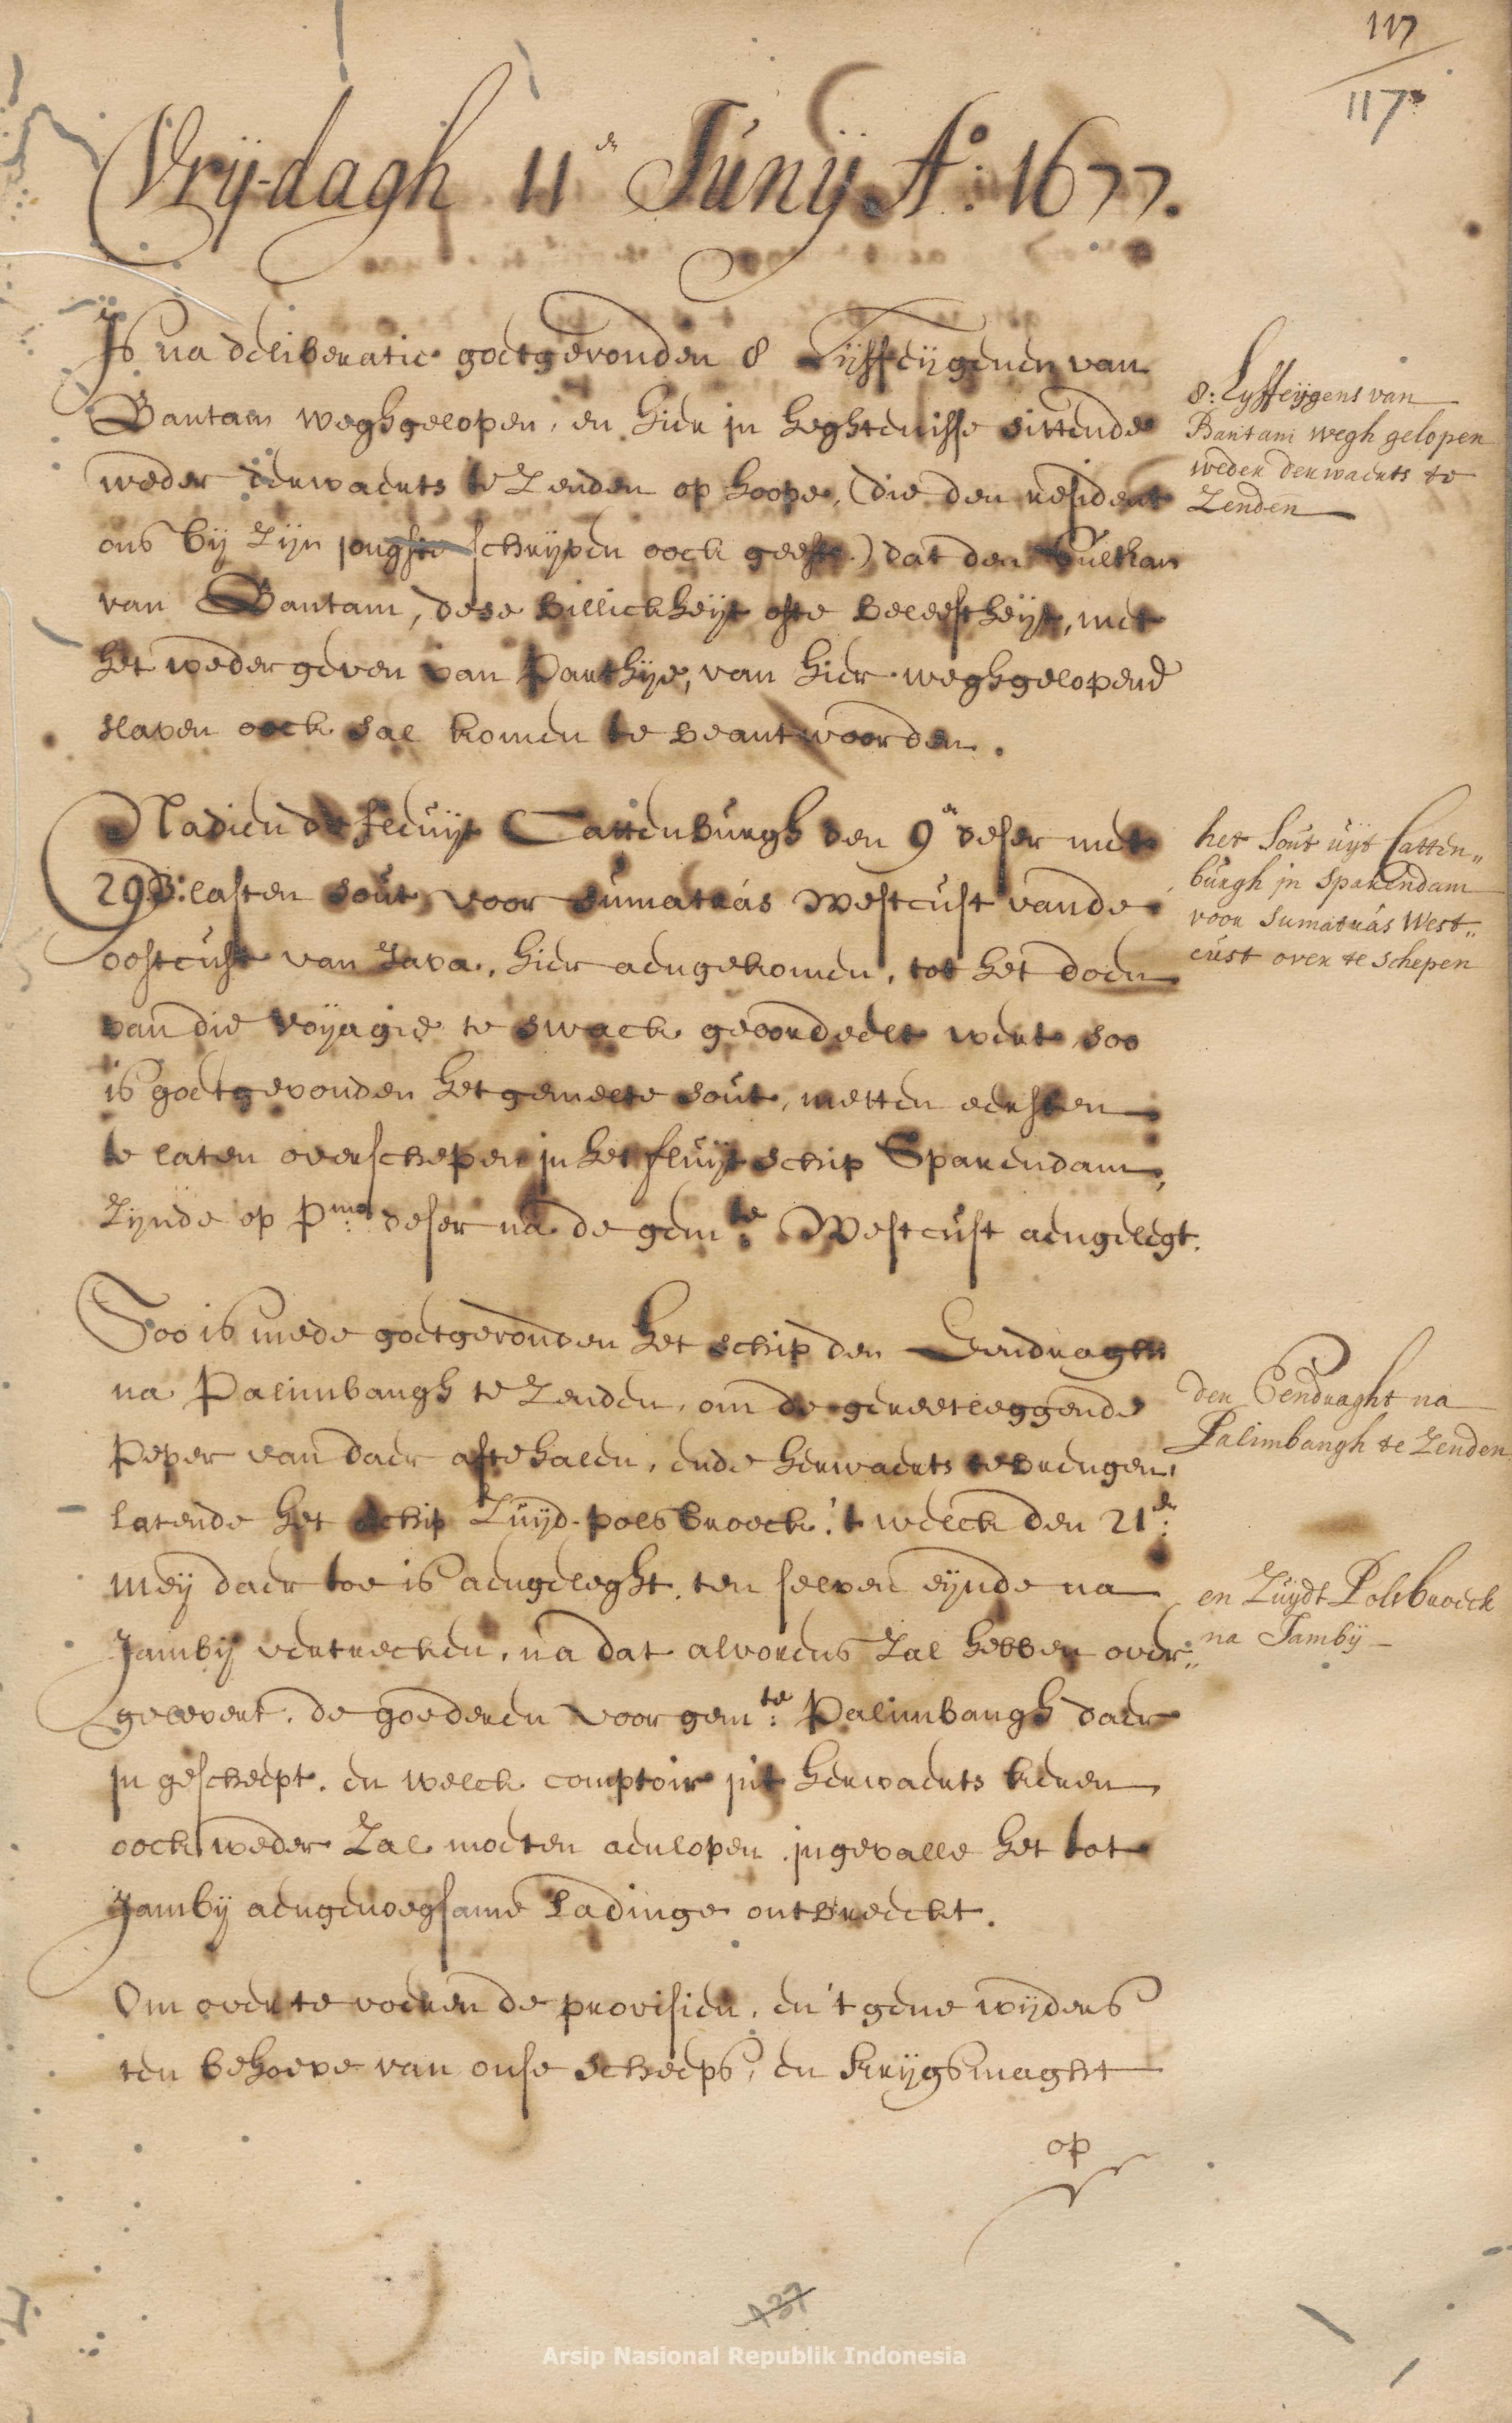 117
117
Vrijdagh 11en Junij Ao: 1677.
Is na deliberatie goetgevonden 8 Lijffeijgenen van
Bantam weghgelopen, en hier in heghtenisse sittende
weder derwaerts te Zenden op hoope, (die den resident
ons bij Zijn jongste schrijven oock geeft) dat den Sulthan
van Bantam, dese billickheijt ofte beleeftheijt, met
het wedergeven van Parthije, van hier weghgelopene
slaven oock sal komen te beantwoorden.
8: Lyffeijgens van
Bantam wegh gelopen
weder derwaerts te
Zenden
Nadien de fleuijt Cattenburgh den 9en deser met
lasten sout, voor Sumatras Westcust vande
oostcust van Java, hier aengekomen, tot het doen
van die voijagie te swack geoordeelt wert, soo
is goetgevonden het gemelte sout, metten eersten
te laten overschepen in het fluijtschip Sparendam,
Zijnde op Pmo: deser na de gemte: Westcust aengelegt.
het Sout uijt Catten„
burgh in Sparendam
voor Sumatras West„
cust over te schepen
Soo is mede goetgevonden het schip den Eendraght
na Palimbangh te Zenden, om de gereetleggende
Peper van daer afte halen, ende herwaerts te brengen,
latende het schip Zuijd-polsbroeck, 't welck den 21en:
meij daer toe is aengeleght, ten selven eijnde na
Jambij vertrecken, na dat alvorens Zal hebben over„
gelevert, de goederen voor gemte: Palimbangh daer
in gescheept, en welck comptoir int herwaerts keren
oock weder Zal moeten aenlopen, ingevalle het tot
Jambij aengenoegsame Ladinge ontbreeckt.
den Eendraght na
Palimbangh te Zenden
en Zuijdt Polsbroeck
na Jambij
Om overte voeren de provisien, en 't gene wijders
ten behoeve van onse scheeps, en krijgsmaght
op
137
Arsip Nasional Republik Indonesia